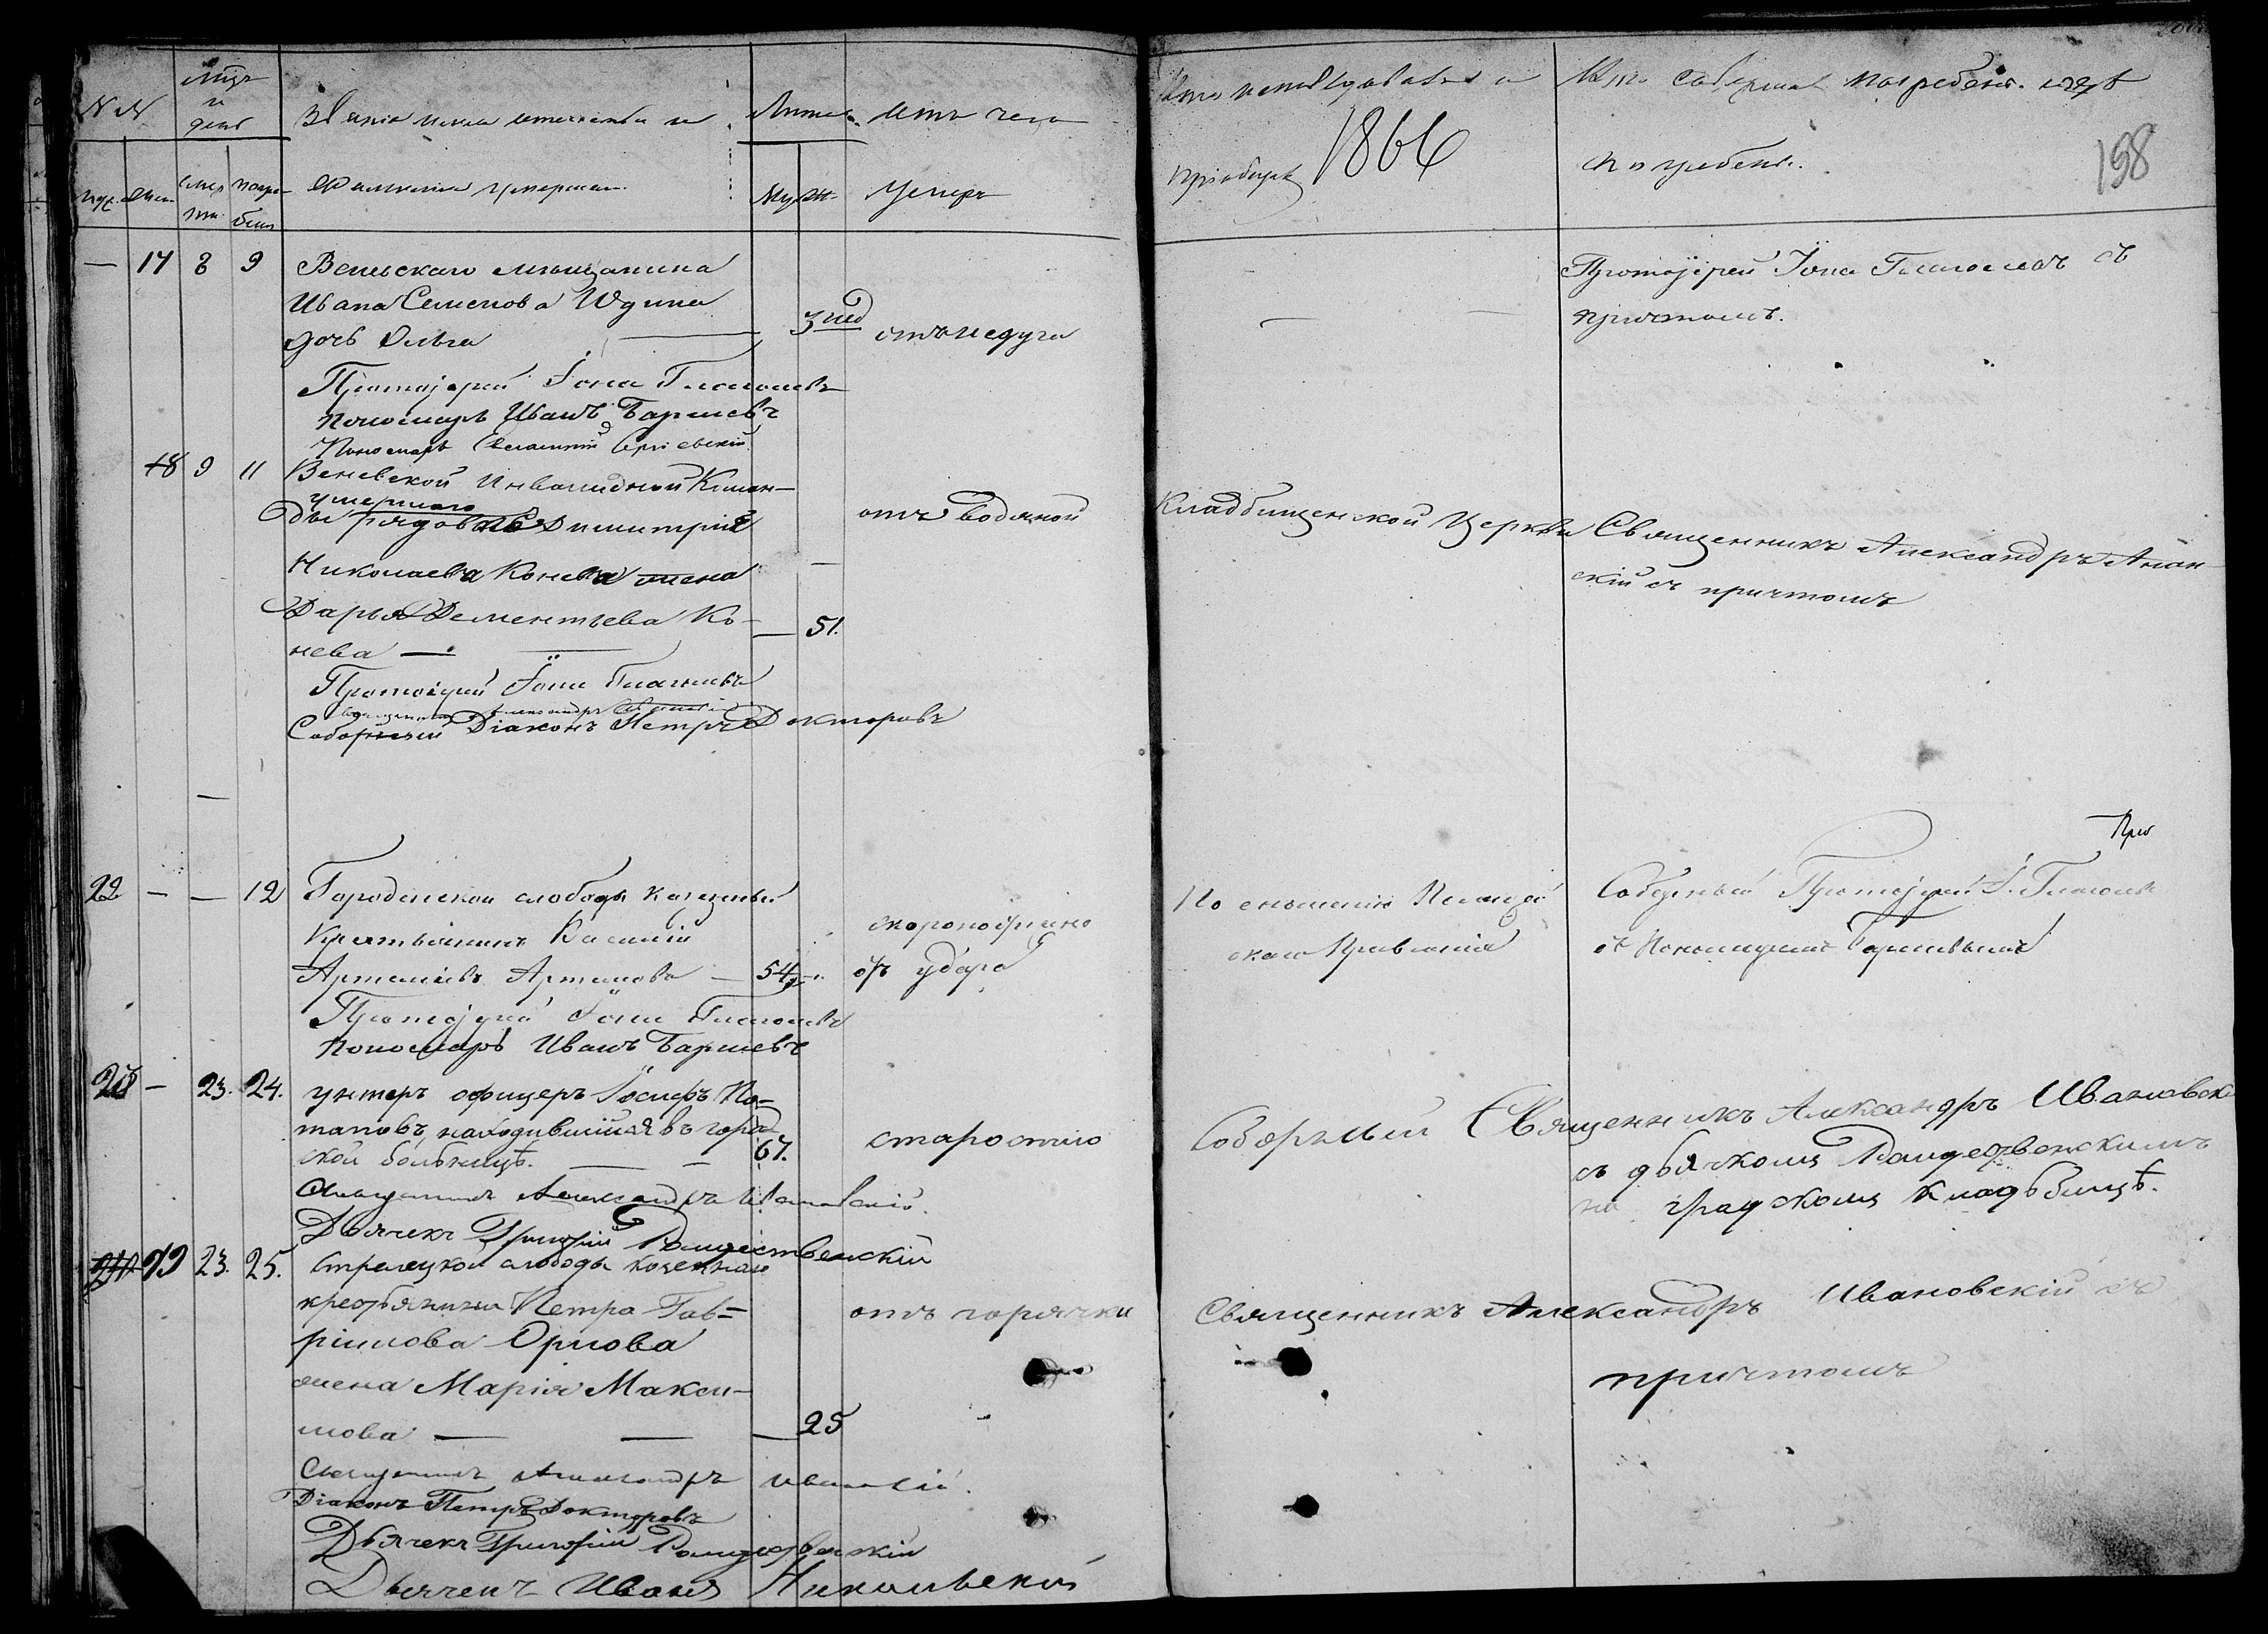 N N
Мцъ
и
день
Званіе имя отечество и
Лѣта
отъ чего
муж. жен.
смер
ти
погре
бен
фамилія умершаго
му ж
умеръ
— 17 8 9
Веневскаго мѣщанина
Ивана Семенова Юдина
дочь Ольга
3 нед
отъ недуга
Протоіерей Іона Глаголевъ
Пономарь Иванъ Баршевъ
Пономарь Сергіевскій
18 9 11
Веневской Инвалидной Коман-
умершаго
ды рядоваго Димитрія
Николаева Конева жена
Дарья Дементьева Ко-
нева — — 51.
отъ водяной
Протоіерей Іона Глаголевъ
Соборный Діаконъ Петръ Докторовъ
22 — — 12
Городенской слободы казенный
крестьянинъ Василій
Артемьевъ Артемова — 54
скоропостижно
отъ удара
Протоіерей Іона Глаголевъ
Пономарь Иванъ Баршевъ
23 — 23. 24.
унтеръ офицеръ Іосифъ По-
таповъ, находившійся въ город
ской больницѣ. — — 67.
старостію
Священникъ Александръ Ивановскій.
Дьячекъ Григорій Рождественскій
19 23. 25.
Стрелецкой слободы казеннаго
крестьянина Петра Гав-
рилова Орлова
жена Марія Макси-
мова — — — 25
отъ горячки
Священникъ Александръ Ивановскій.
Діаконъ Петръ Докторовъ
Дьячекъ Григорій Рождественскій
Дьячекъ Иванъ Никольскій
Кто исповѣдовалъ и
пріобщал
1866
Кто совершал погребеніе и гдѣ
погребены.
198
Протоіерей Іона Глаголевъ съ
причтомъ.
Кладбищенской Церкви Священникъ Александръ
скій съ причтомъ
По сношенію Полицей
скаго Правленія
Соборный Протоіерей І. Глаголевъ
съ Пономаремъ Баршевымъ
Соборный Священникъ Александръ Ивановск
съ дьячкомъ Рождественскимъ
на градскомъ кладбищѣ.
Священникъ Александръ Ивановскій съ
причтомъ